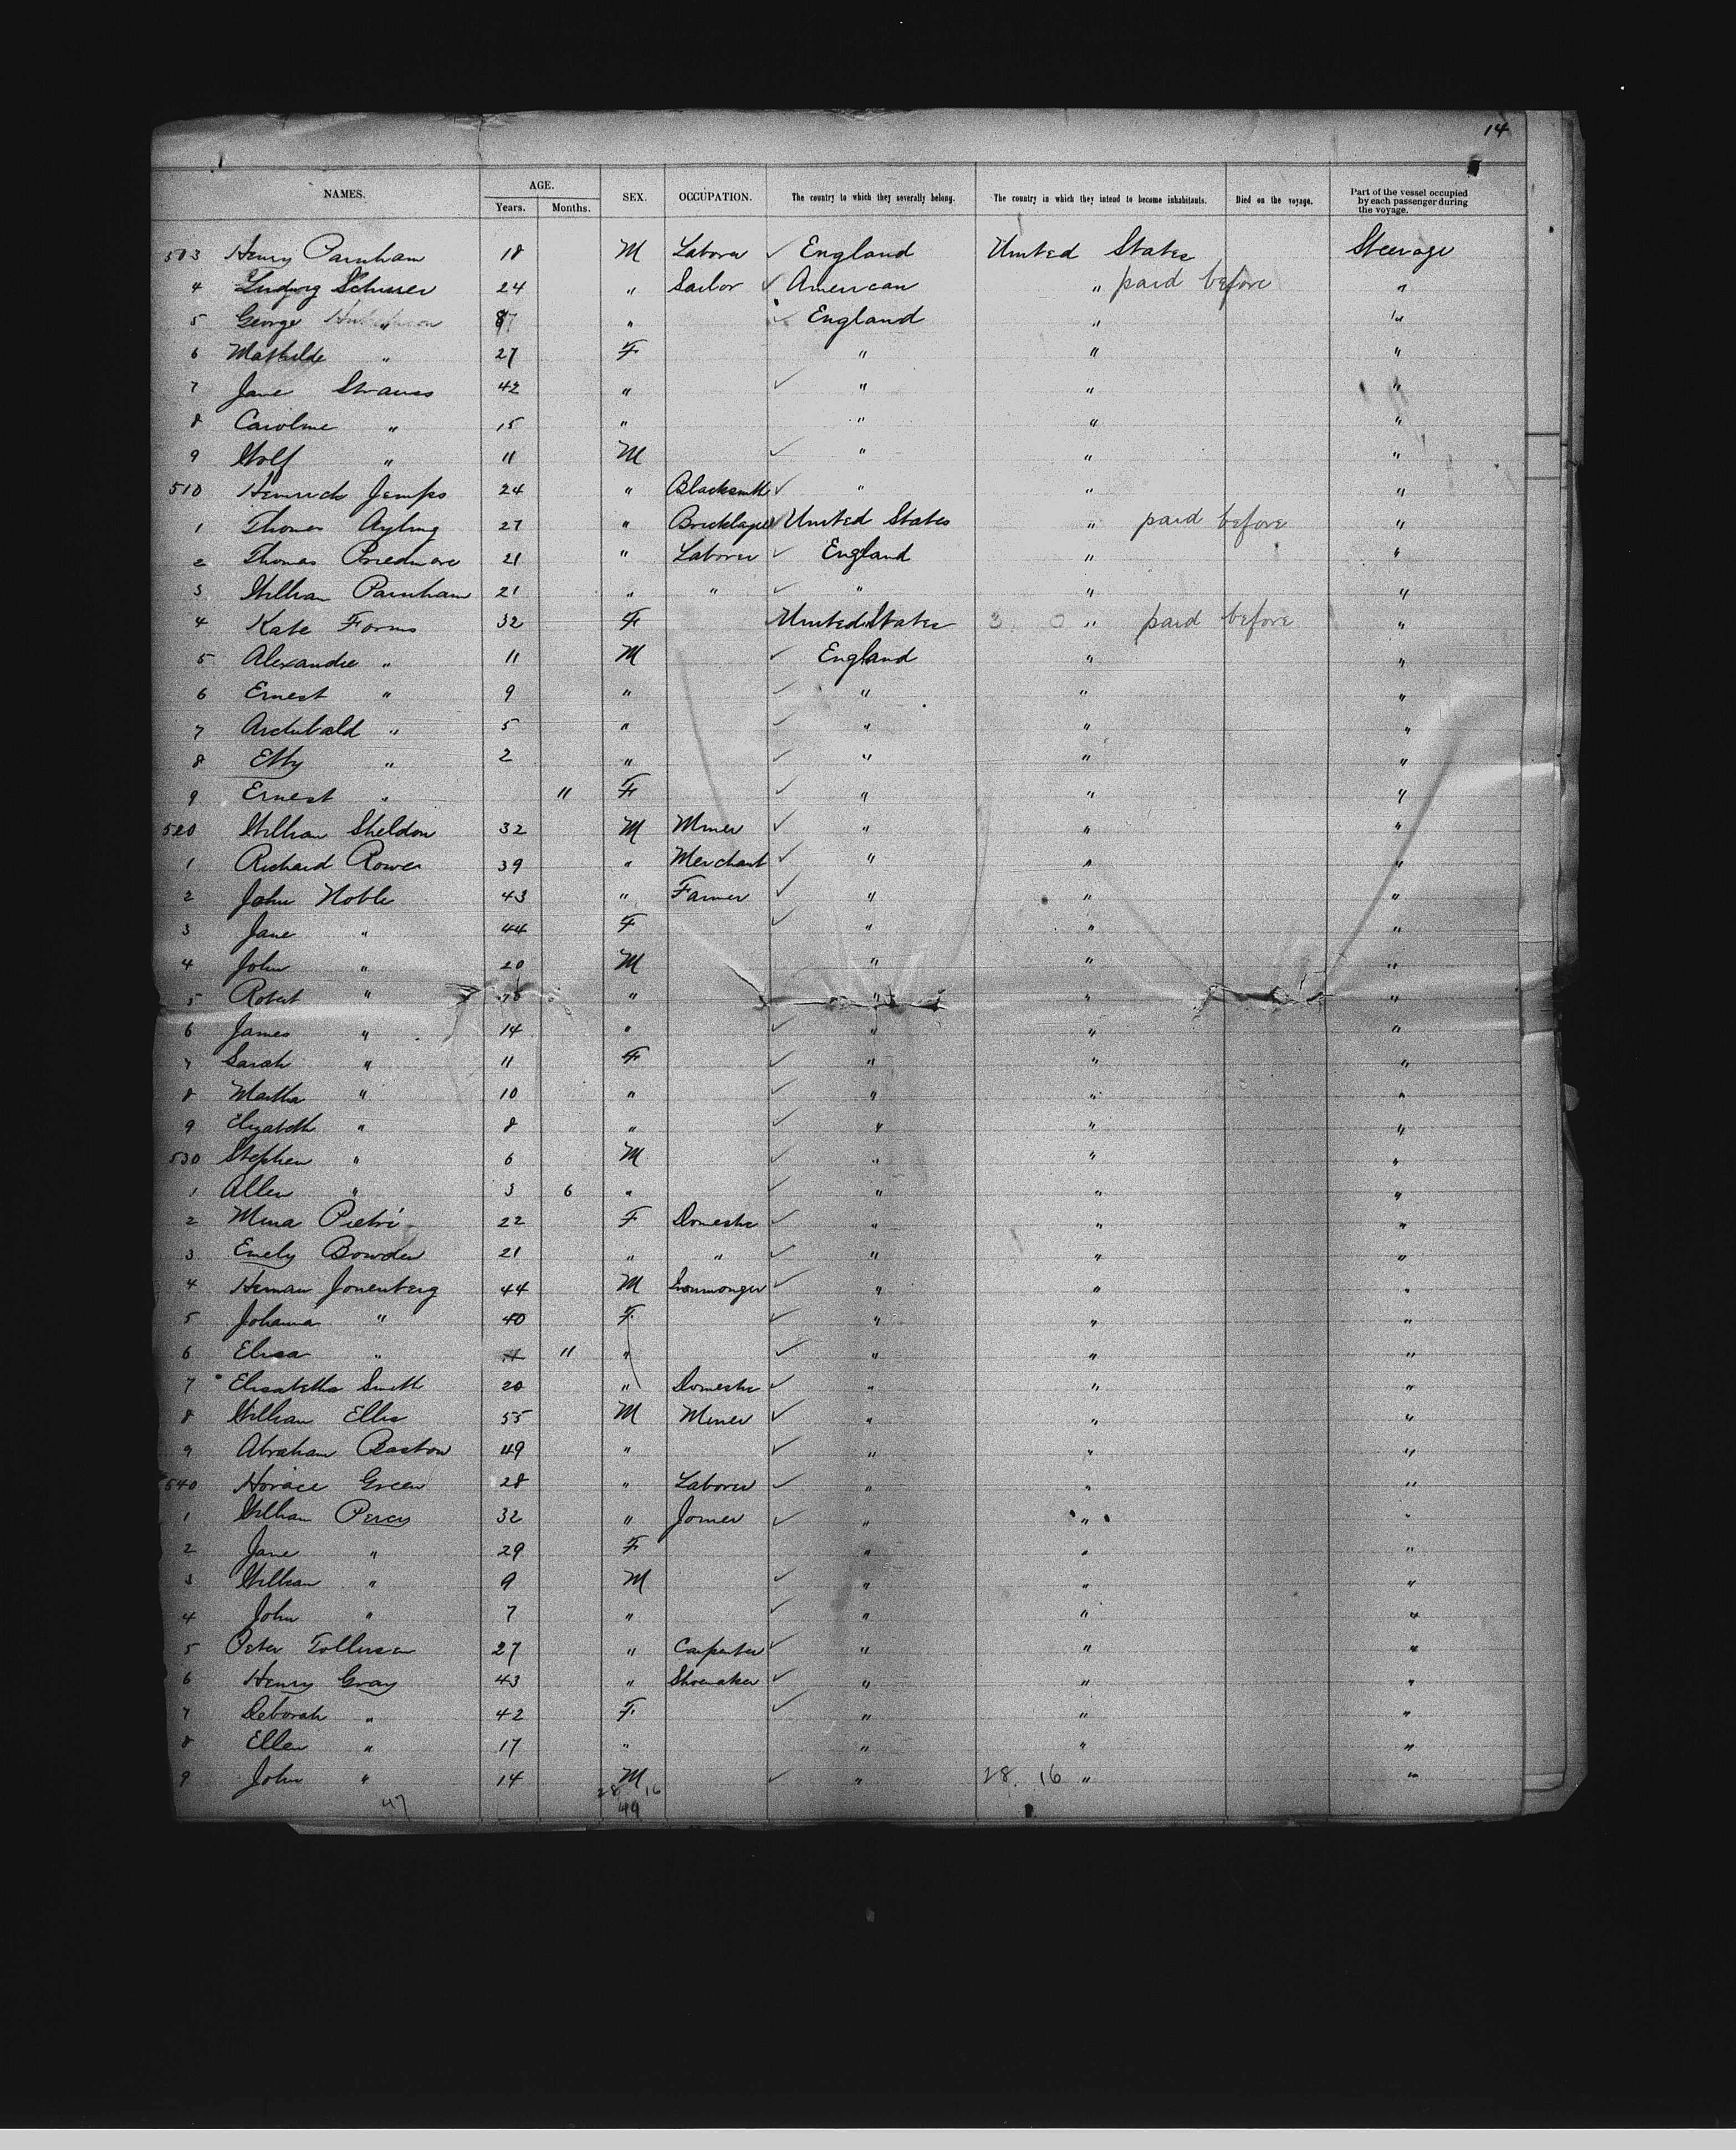 14
NAMES. AGE. Years. Months. SEX. OCCUPATION. The country to which they severally belong. The country in which they intend to become inhabitants. Died on the voyage. Part of the vessel occupied by each passenger during the voyage.
503 Henry Parnham 18 M Laborer ✓ England United States Steerage
4 Ludwig Scheurer 24 " Sailor ✓ American " paid before "
5 George " " ✓ England " "
6 Mathilde " 27 F " " "
7 Jane Strauss 42 " ✓ " " "
8 Caroline " 15 " " " "
9 Wolf " 11 M ✓ " " "
510 Heinrich 24 " Blacksmith ✓ " " "
1 Thomas Ayling 27 " Bricklayer ✓ United States " paid before "
2 Thomas 21 " Laborer ✓ England " "
3 William Parnham 21 " " ✓ " " "
4 Kate Forms 32 F United States 3 0 " paid before "
5 Alexandre " 11 M ✓ England " "
6 Ernest " 9 " ✓ " " "
7 Archibald " 5 " ✓ " " "
8 Etty " 2 " ✓ " " "
9 Ernest " 11 F ✓ " " "
520 William Sheldon 32 M Miner ✓ " " "
1 Richard Rowe 39 " Merchant ✓ " " "
2 John Noble 43 " Farmer ✓ " " "
3 Jane " 44 F ✓ " " "
4 John " 20 M " " "
5 Robert " " " " "
6 James " 14 " ✓ " " "
7 Sarah " 11 F ✓ " " "
8 Martha " 10 " ✓ " " "
9 Elizabeth " 8 " ✓ " " "
530 Stephen " 6 M ✓ " " "
1 Allen " 3 6 " ✓ " " "
2 Mina Pietri 22 F Domestic ✓ " " "
3 Emely Bowden 21 " " ✓ " " "
4 Herman Jonenberg 44 M Ironmonger ✓ " " "
5 Johanna " 40 F ✓ " " "
6 Elisa " 11 " ✓ " " "
7 Elisabetha Smith 20 " Domestic ✓ " " "
8 William Ellis 55 M Miner ✓ " " "
9 Abraham Bastow 49 " ✓ " " "
540 Horace Green 28 " Laborer ✓ " " "
1 William Percy 32 " Joiner ✓ " " "
2 Jane " 29 F " " "
3 William " 9 M ✓ " " "
4 John " 7 " ✓ " " "
5 Peter Tollersen 27 " Carpenter ✓ " " "
6 Henry Gray 43 " Shoemaker ✓ " " "
7 Deborah " 42 F ✓ " " "
8 Ellen " 17 " " " "
9 John " 14 M ✓ " 28. 16 " "
47 28 16
44